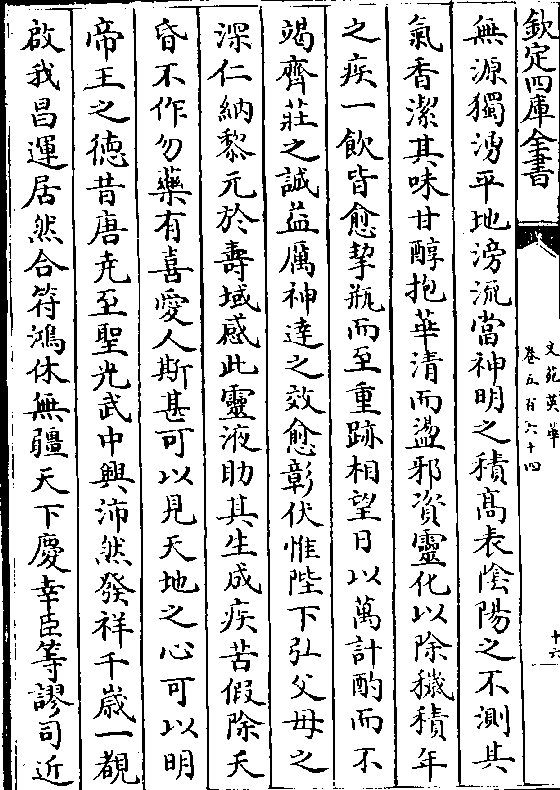 欽定四庫全書
文苑英華
卷五百六十四
十六
無源獨湧平地滂流當神明之積髙表隂陽之不測其
氣香潔其味甘醇抱華清而盪邪資靈化以除穢積年
之疾一飲皆愈挈瓶而至重跡相望日以萬計酌而不
竭齊莊之誠益厲神達之效愈彰伏惟陛下弘父母之
深仁納黎元於壽域感此靈液助其生成疾苦假除夭
昏不作勿藥有喜愛人斯甚可以見天地之心可以明
帝王之徳昔唐尭至聖光武中興沛然發祥千嵗一覩
啟我昌運居然合符鴻休無疆天下慶幸臣等謬司近